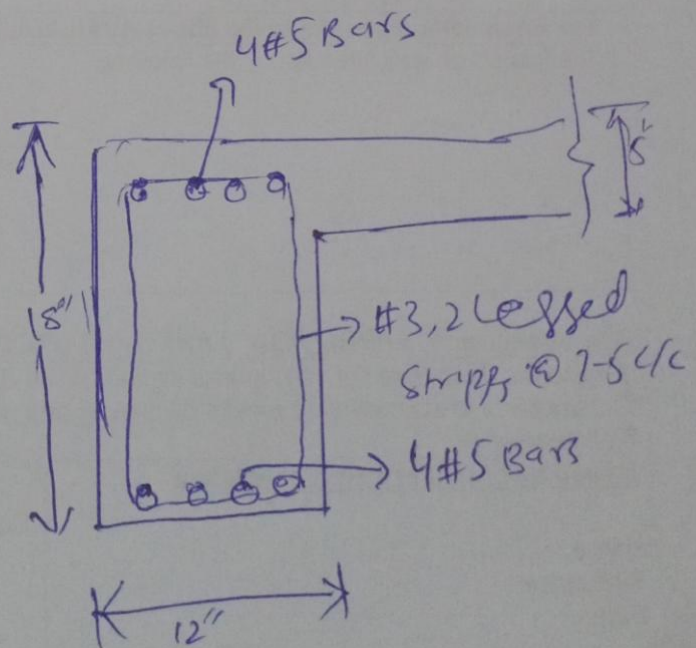 4#5 Bars
18"
#3, 2 Legged
@ 7-5 c/c
4#5 Bars
12"